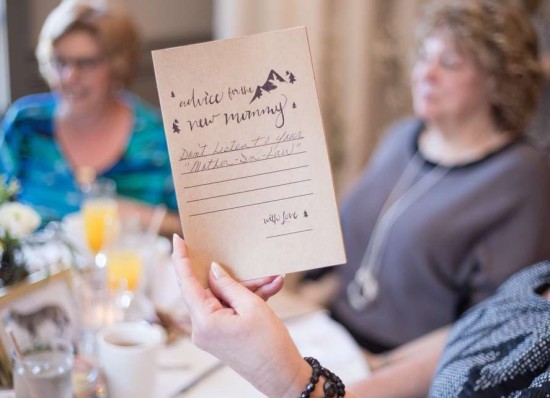 advice for the
new mommy
Don't Listen to your
"Mother-In-Law!"
with love